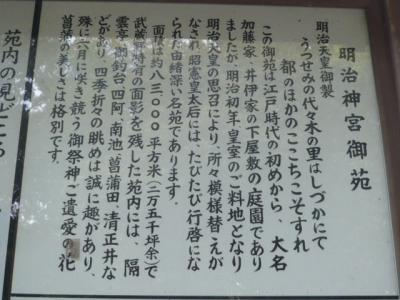 明治神宮御苑
明治天皇御製
うつせみの代々木の里はしづかにて
都のほかのここちこそすれ
この御苑は江戸時代の初めから、大名
加藤家、井伊家の下屋敷の庭園であり
ましたが、明治初年皇室のご料地となり
明治天皇の思召により、所々模様替えが
なされ昭憲皇太后には、たびたび行啓にな
られた由緒深い名苑であります。
面積は約八三〇〇〇平方米(二万五千坪余)で
武蔵野特有の面影を残した苑内には、隔
雲亭、御釣台、四阿、南池、菖蒲田、清正井な
どがあり、四季折々の眺めは誠に趣があり、
殊に六月に咲き競う御祭神ご遺愛の花
菖蒲の美しさは格別です。
苑内の見どころ